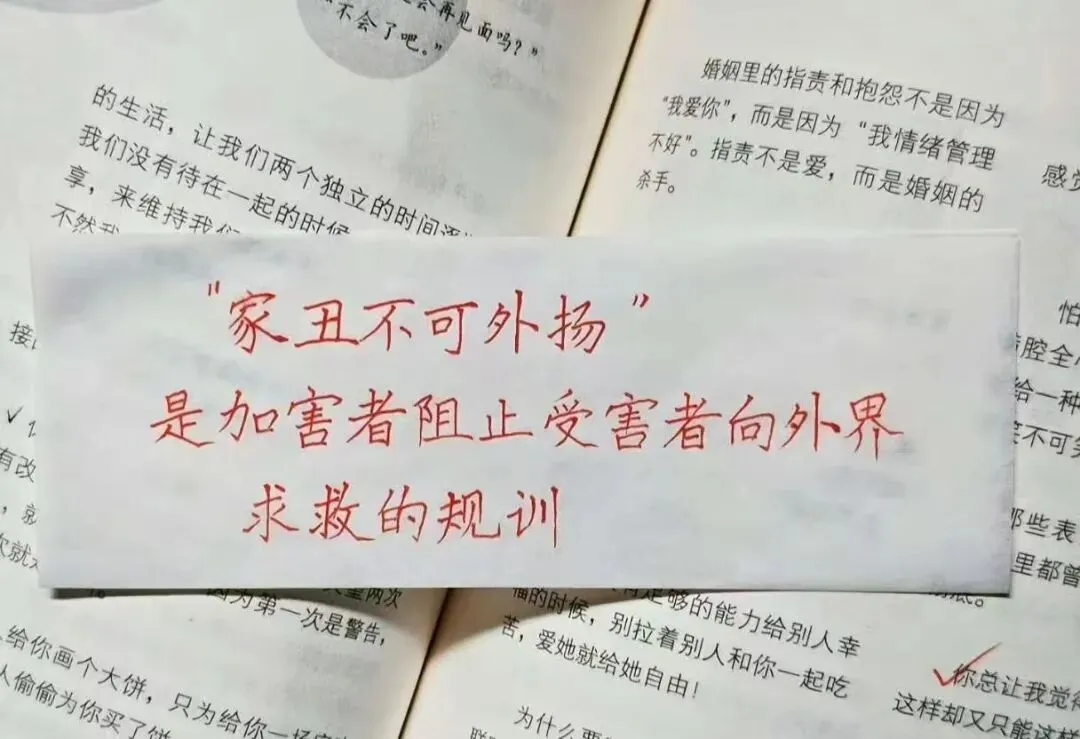 会再见面吗？”
不会了吧。”
的生活，让我们两个独立的时间
我们没有待在一起的时候
享，来维持我们
不然我
接
有改
，就
次就
两次
因为第一次是警告，
给你画个大饼，只为给你一场
人偷偷为你买了饼
婚姻里的指责和抱怨不是因为
“我爱你”，而是因为“我情绪管理
不好”。指责不是爱，而是婚姻的
杀手。
感觉
怕
腔全
给一种
不可笑
那些表
里都曾
底。
“家丑不可外扬”
是加害者阻止受害者向外界
求救的规训
足够的能力给别人幸
福的时候，别拉着别人和你一起吃
苦，爱她就给她自由！
为什么要
你总让我觉得
这样却又只能这样